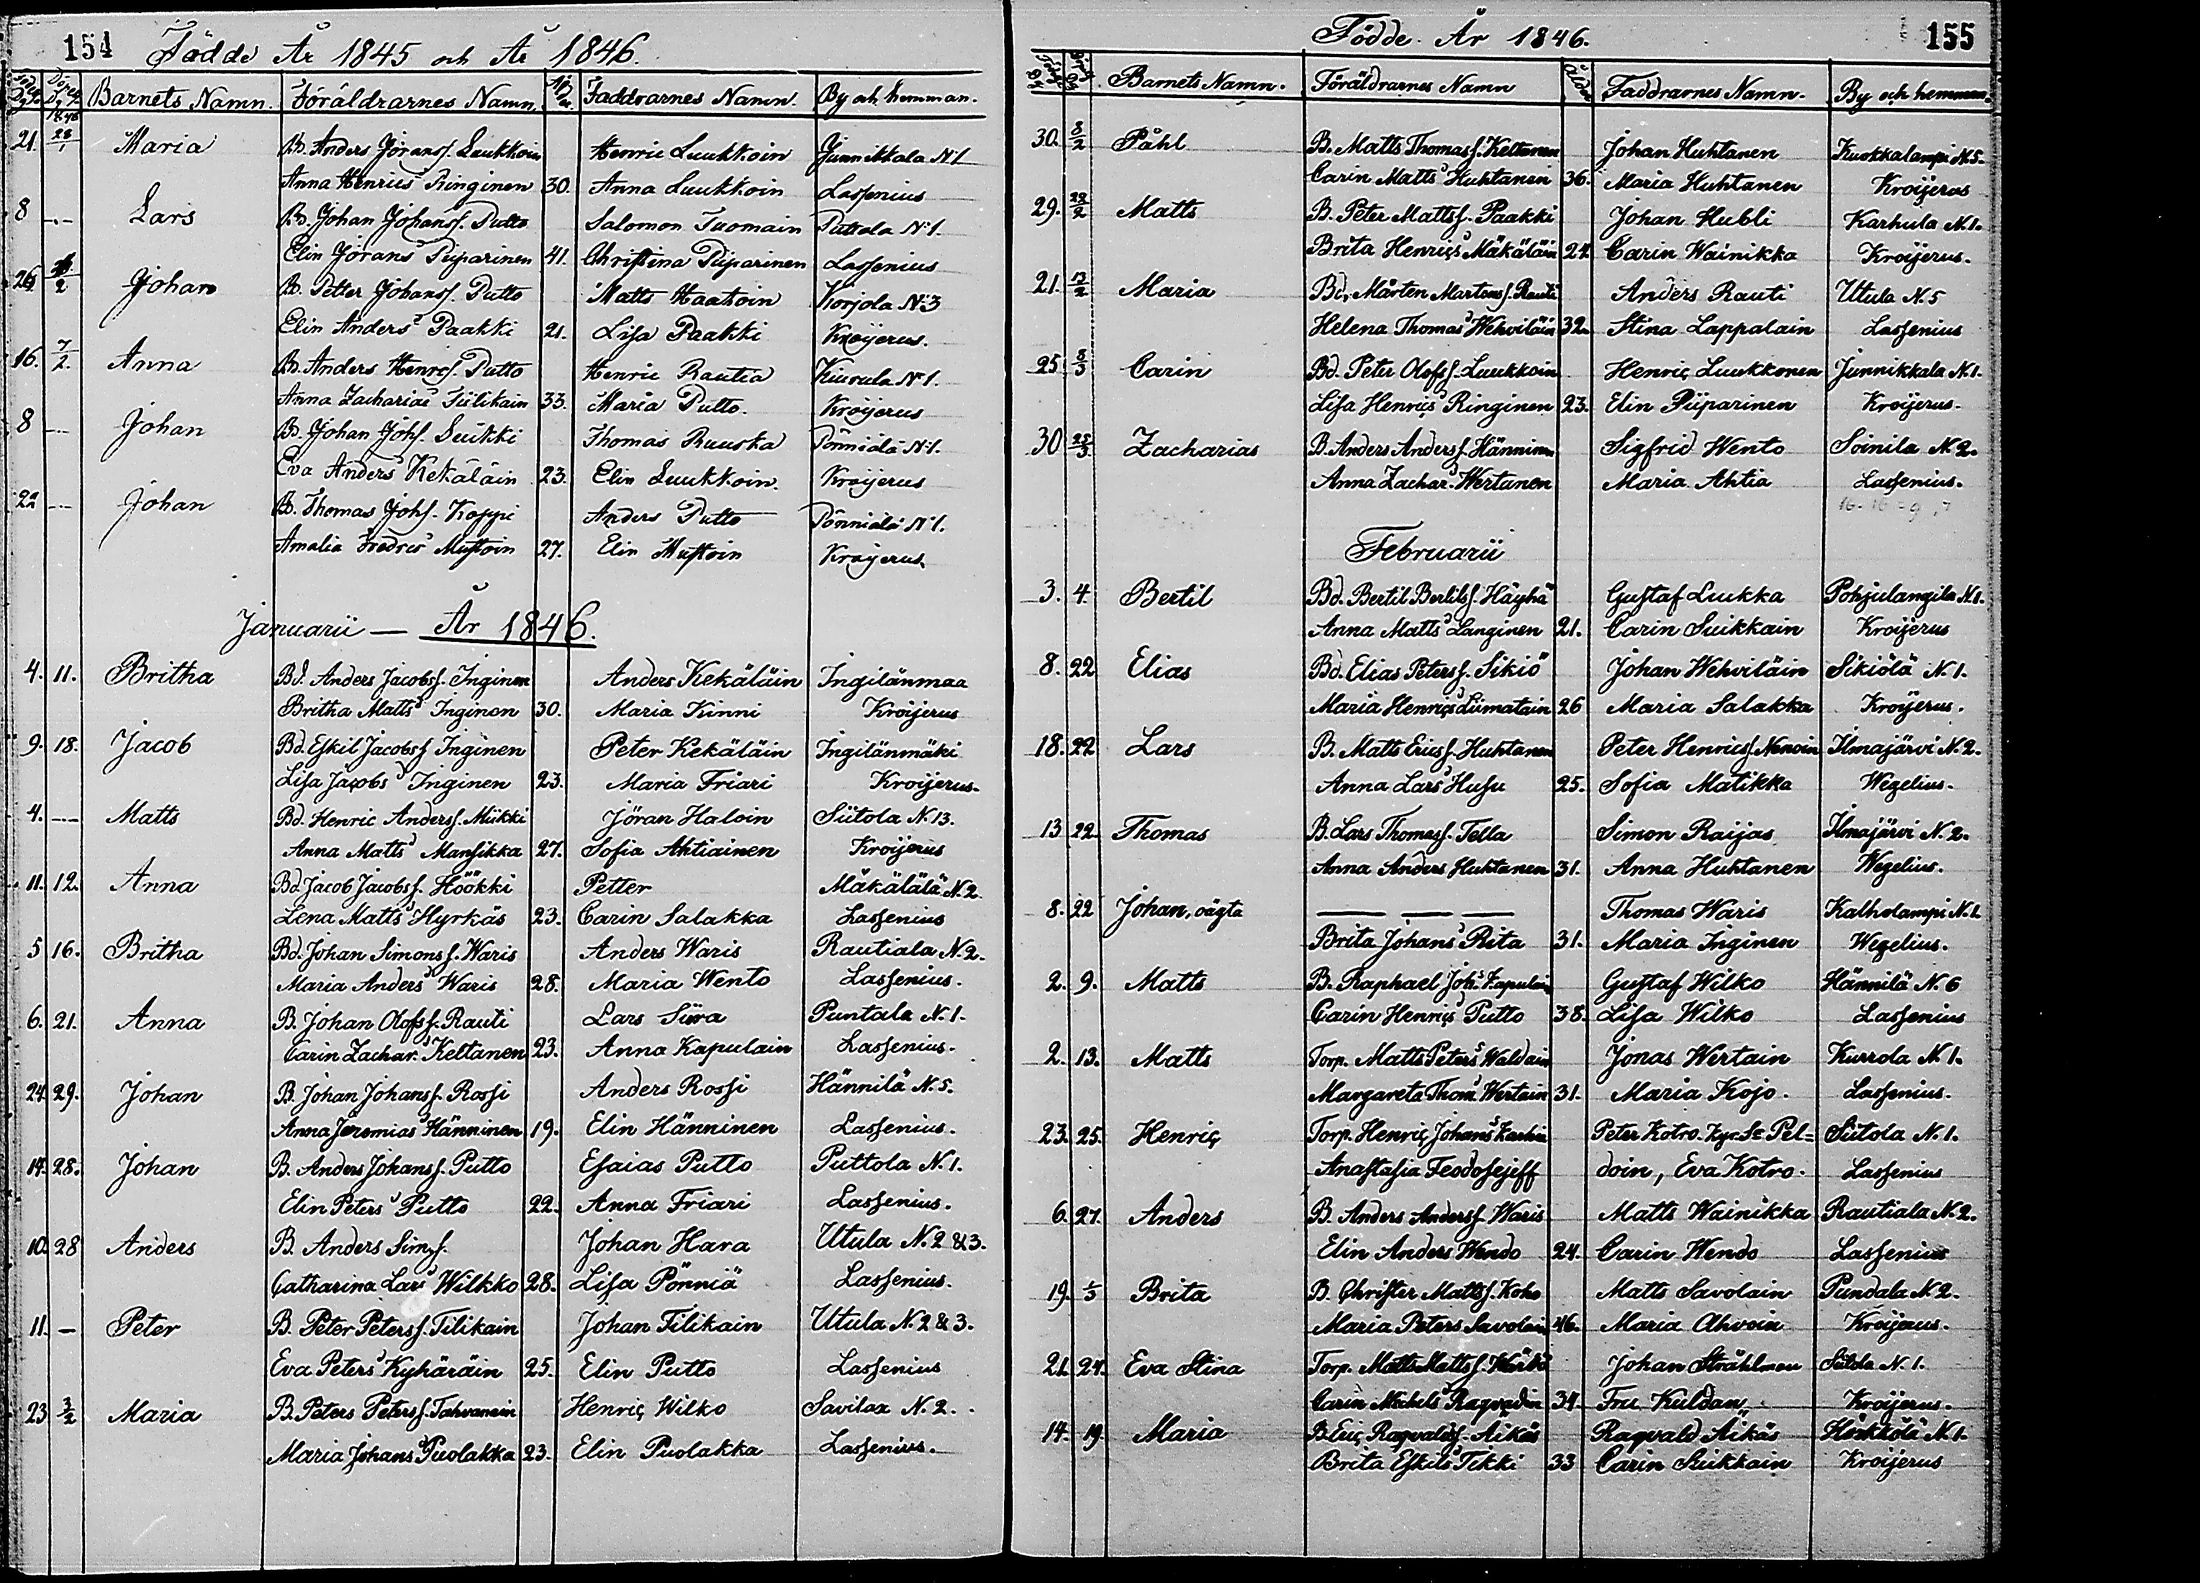 154 Födde År 1845 och År 1846.
Barnets Namn. Föräldrarnes Namn. Faddrarnes Namn. By och hemman.
1846
21. 28/1 Maria B. Anders Göranss. Luukkoin Henric Luukkoin Junnikkala N:1
Anna Henrics Ringinen 30. Anna Luukkoin Lassenius
8 -.- Lars B. Johan Johanss. Putto Salomon Tuomain Puttola N:1.
Elin Jörans Piiparinen 41. Christina Piiparinen Lassenius
26. /2 Johan B. Petter Johanss. Putto Matts Haakoin Korjola N:3
Elin Anders Paakki 21. Lisa Paakki Kröijerus.
16. 7/2. Anna B. Anders Henrcs. Putto Henric Rautia Kiurula N:1.
Anna Zacharias Tiilikain 33. Maria Putto. Kröijerus
8 -.- Johan B. Johan Johs. Suikki Thomas Ruuska Pönniälä N:1.
Eva Anders Kekäläin 23. Elin Luukkoin. Kröijerus
22 -.- Johan B. Thomas Johs. Koppi Anders Putto Pönniälä N:1.
Amalia Fredrcs Mustoin 27. Elin Mustoin Kröijerus.
Januarii — År 1846.
4. 11. Britha Bd. Anders Jacobss. Inginen Anders Kekäläin Ingilänmaa
Britha Matts Inginen 30. Maria Kinni Kroijerus
9. 18. Jacob Bd. Eskil Jacobss Inginen Peter Kekäläin Ingilänmäki
Lisa Jacobs Inginen 23. Maria Friari Kroijerus.
4. -.- Matts Bd. Henric Anderss. Miikki Jöran Haloin Siitola N.13.
Anna Matts Mansikka 27. Sofia Ahtiainen Kroijerus
11. 12. Anna Bd. Jacob Jacobss. Höökki Petter Mäkälälä N.2.
Lena Matts Hyrkäs 23. Carin Salakka Lassenius
5 16. Britha Bd. Johan Simonss. Waris Anders Waris Rautiala N.2.
Maria Anders Waris 28. Maria Wento Lassenius.
6. 21. Anna B. Johan Olofss. Rauti Lars Siira Puntala N.1.
Carin Zachar. Keltanen 23. Anna Kapulain Lassenius.
24. 29. Johan B. Johan Johanss. Rossi Anders Rossi Hännilä N.5.
Anna Jeremias Hänninen 19. Elin Hänninen Lassenius.
14. 28. Johan B. Anders Johanss. Putto Esaias Putto Puttola N.1.
Elin Peters Putto 22. Anna Friari Lassenius.
10. 28 Anders B. Anders Sim.s. Johan Hara Utula N.2 & 3.
Catharina Lars Wilkko 28. Lisa Pönniä Lassenius.
11. — Peter B. Peter Peterss. Tilikain Johan Tilikain Utula N.2 & 3.
Eva Peters Kyhäräin 25. Elin Putto Lassenius
23 3/2 Maria B. Peters Peterss. Tahvanain Henric Wilko Savilax N.2.
Maria Johans Puolakka 23. Elin Puolakka Lassenius.
Födde År 1846. 155
Barnets Namn. Föräldrarnes Namn Ålder Faddrarnes Namn. By och hemman.
30. 8/2 Påhl B. Matts Thomass. Keltanen Johan Huhtanen Kuokkalampi N.5.
Carin Matts Huhtanen 36. Maria Huhtanen Kroijerus
29. 22/2 Matts B. Peter Mattss. Paakki Johan Hubli Karhula N.1.
Brita Henrics Mäkäläin 22 Carin Wainikka Kroijerus.
21. 13/2 Maria Bd. Mårten Martenss. Rauti Anders Rauti Utula N.5
Helena Thomas Wehviläin 32. Stina Lappalain Lassenius
25. 8/3 Carin Bd. Peter Olofss. Luukkoin Henric Luukkonen Junnikkala N.1.
Lisa Henrics Ringinen 23. Elin Piiparinen Kroijerus.
30 25/3 Zacharias B. Anders Anderss. Hänninen Sigfrid Wento Soinila N.2.
Anna Zachar. Wertanen Maria Ahtia Lassenius.
Februarii
3. 4. Bertil Bd. Bertil Bertilss. Häyhä Gustaf Luukka Pohjulangila N.1.
Anna Matts Langinen 21. Carin Suikkain Kroijerus
8. 22 Elias Bd. Elias Peterss. Sikiö Johan Wehviläin Sikiölä N.1.
Maria Henrics Liimatain 26 Maria Salakka Kroijerus.
18. 22 Lars B. Matts Erics. Huhtanen Peter Henricss Nenoin Ilmajärvi N.2.
Anna Lars Husu 25. Sofia Matikka Wegelius.
13 22. Thomas B. Lars Thomass. Tella Simon Raijas Ilmajärvi N.2.
Anna Anders Huhtanen 31. Anna Huhtanen Wegelius.
8. 22 Johan, oägta — — — Thomas Waris Kalholampi N.1.
Brita Johans Rita 31. Maria Inginen Wegelius.
2. 9. Matts B. Raphael Joh:s Kapulain Gustaf Wilko Hännilä N.6
Carin Henrics Putto 38. Lisa Wilko Lassenius
2. 13. Matts Torp. Matts Peters Waldain Jonas Wertain Kurrola N.1.
Margareta Thom. Wertain 31. Maria Kojo. Lassenius.
23. 25. Henric Torp. Henric Johans Peter Kotro. Pel=Siitola N.1.
Anastasia Feodosejeff doin, Eva Kotro. Lassenius
6. 27. Anders B. Anders Anderss. Waris Matts Wainikka Rautiala N.2.
Elin Anders Wendo 24. Carin Wendo Lassenius
19. 1/3 Brita B. Christer Mattss. Koho Matts Savolain Pundala N.2.
Maria Peters Savolain 46. Maria Ahvoin Kroijerus.
21. 24. Eva Stina Torp. Matts Mattss. Johan Stråhlman N.1.
Carin Michels Ragvadin 34. Fru Kuldan Kroijerus.
14. 19. Maria B. Eric Ragvaldss. Äikäs Ragvald Äikäs Hörkkölä N.1.
Brita Eskils Tikki 33 Carin Suikkain Kroijerus